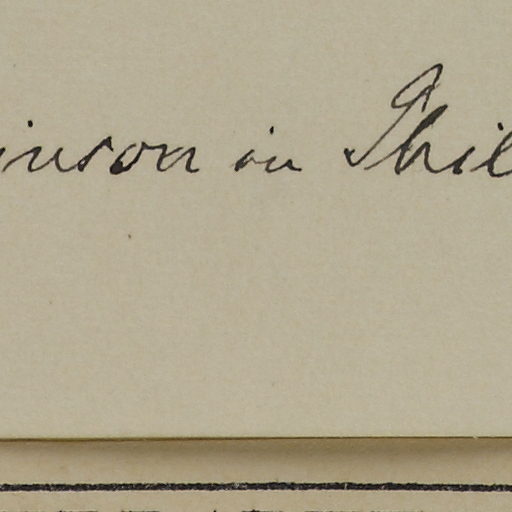 inson in Phil